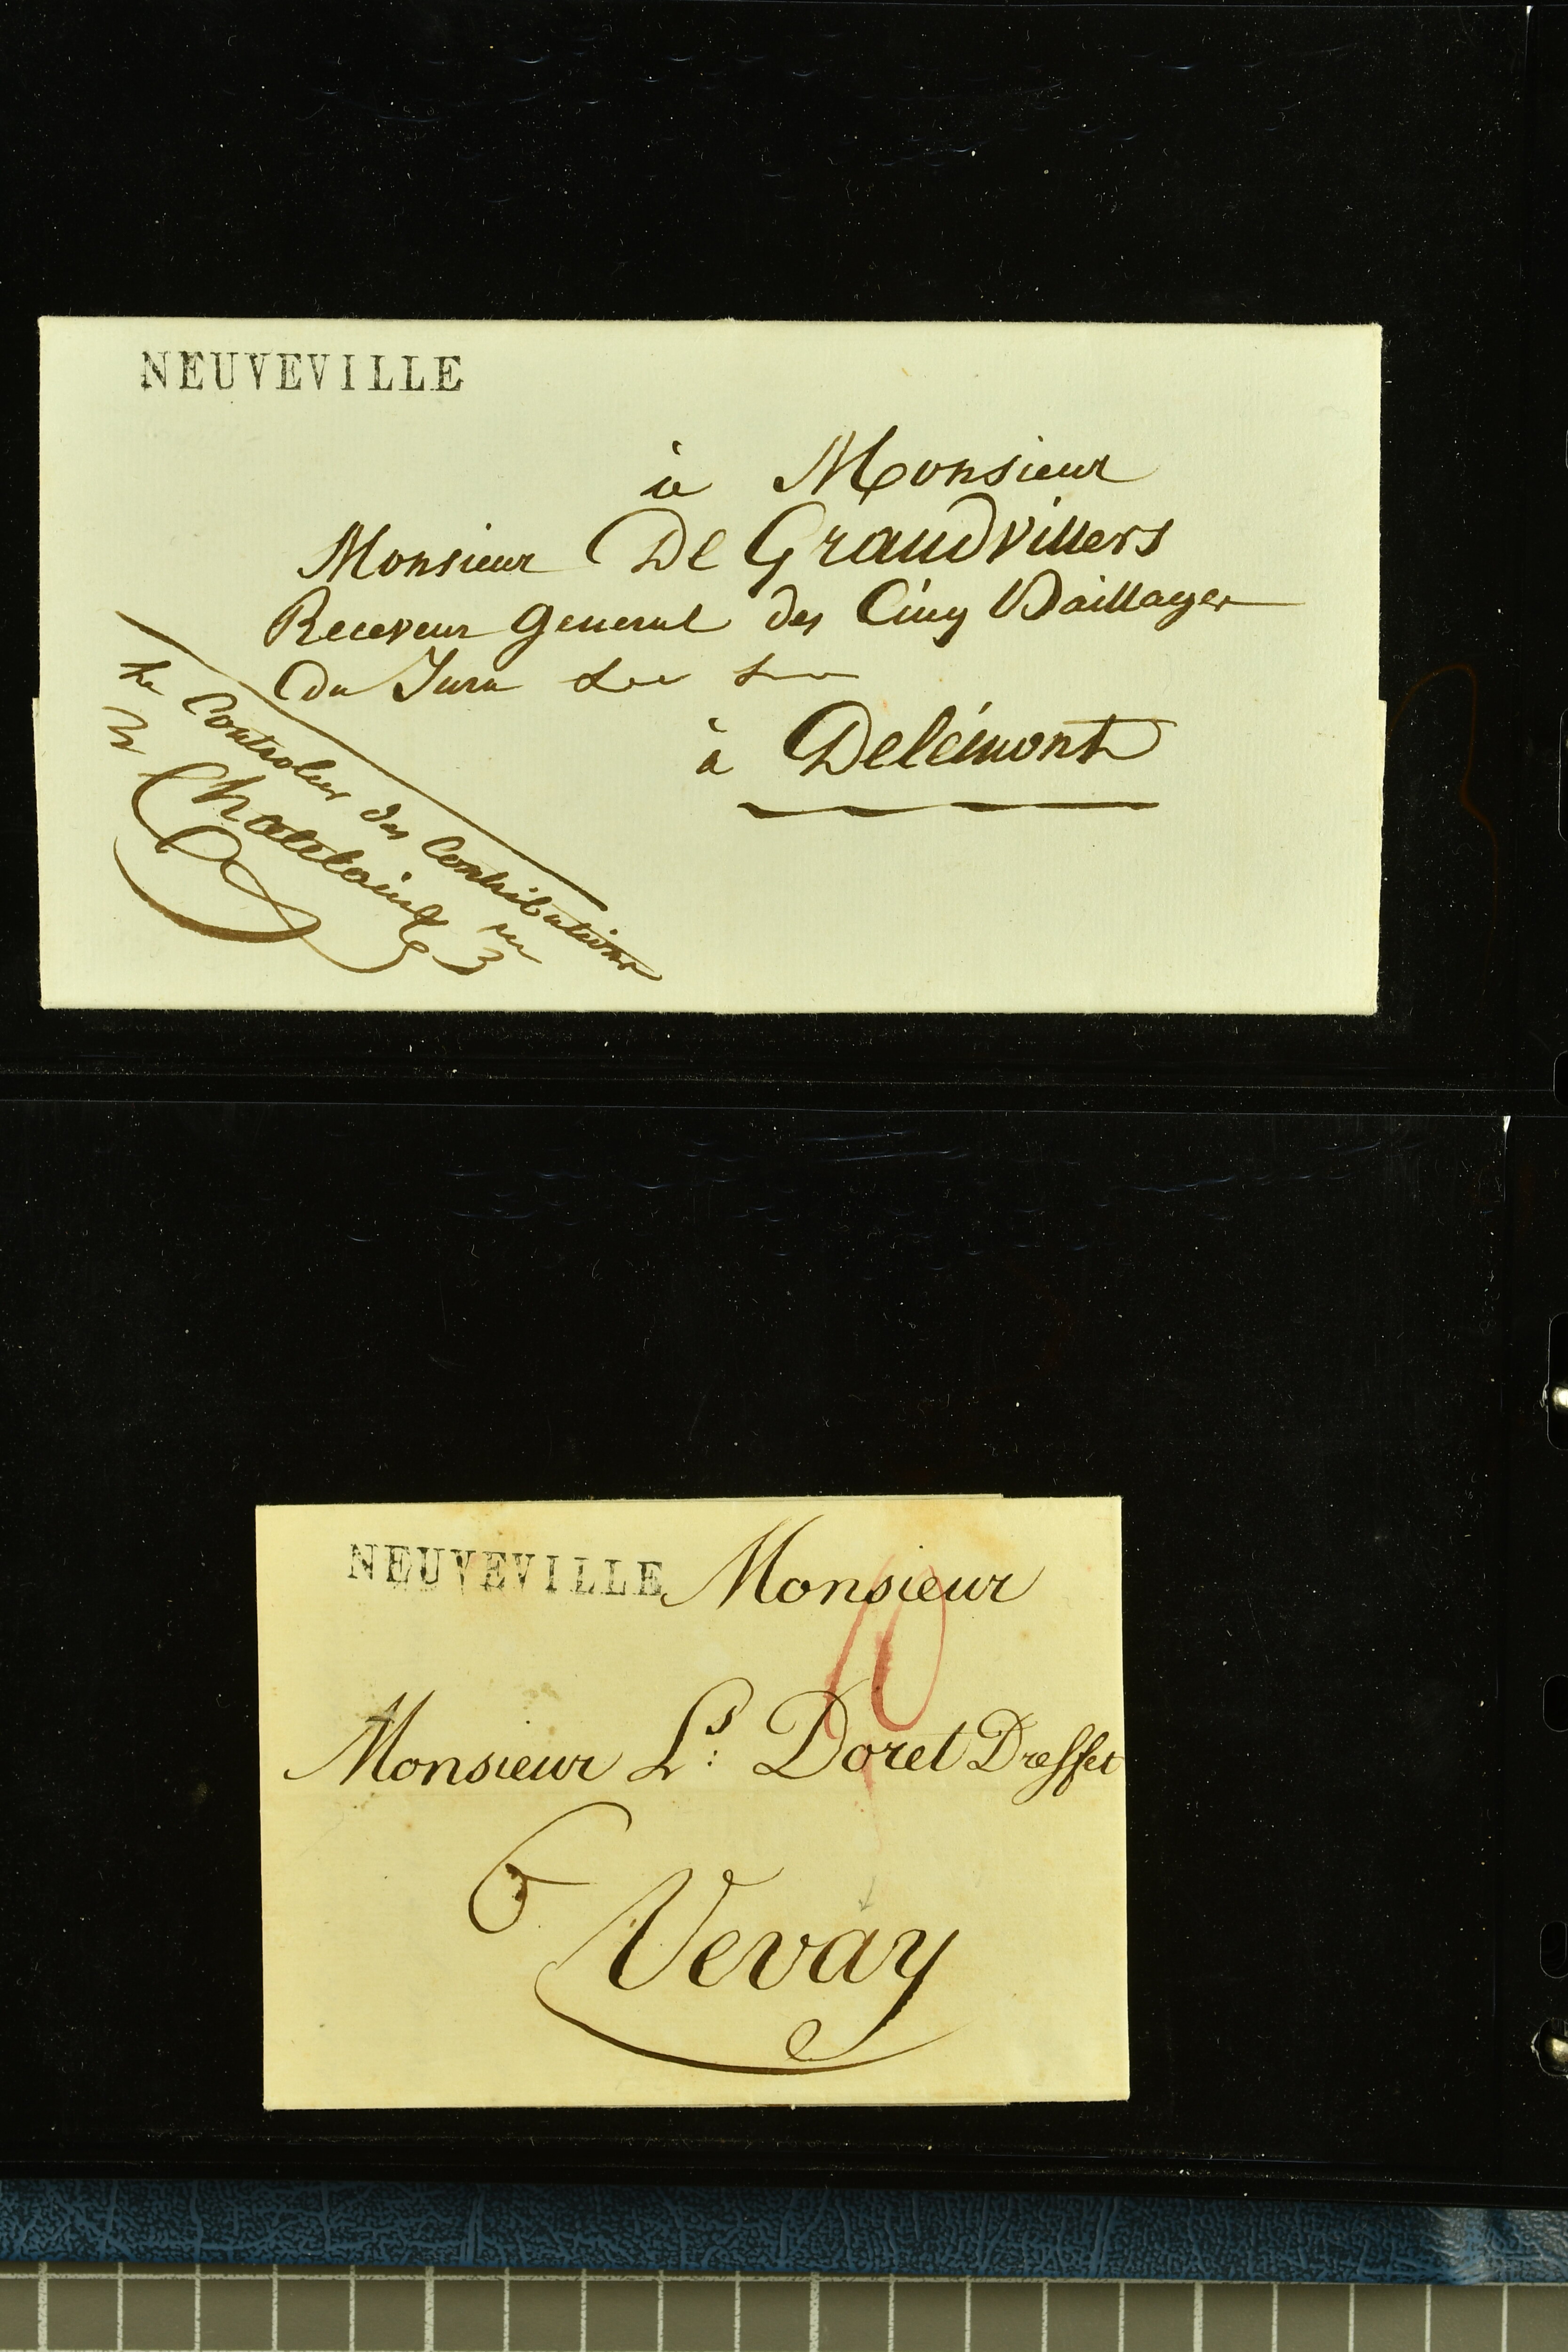 NEUVEVILLE
à Monsieur
Monsieur De Grandvillers
Receveur General des Cinq Baillages
du Jura
à Delémont
Le Controleur des Contributions
Chatelain
NEUVEVILLE
Monsieur
10
Monsieur Ls: Doret Dresset
6
Vevay